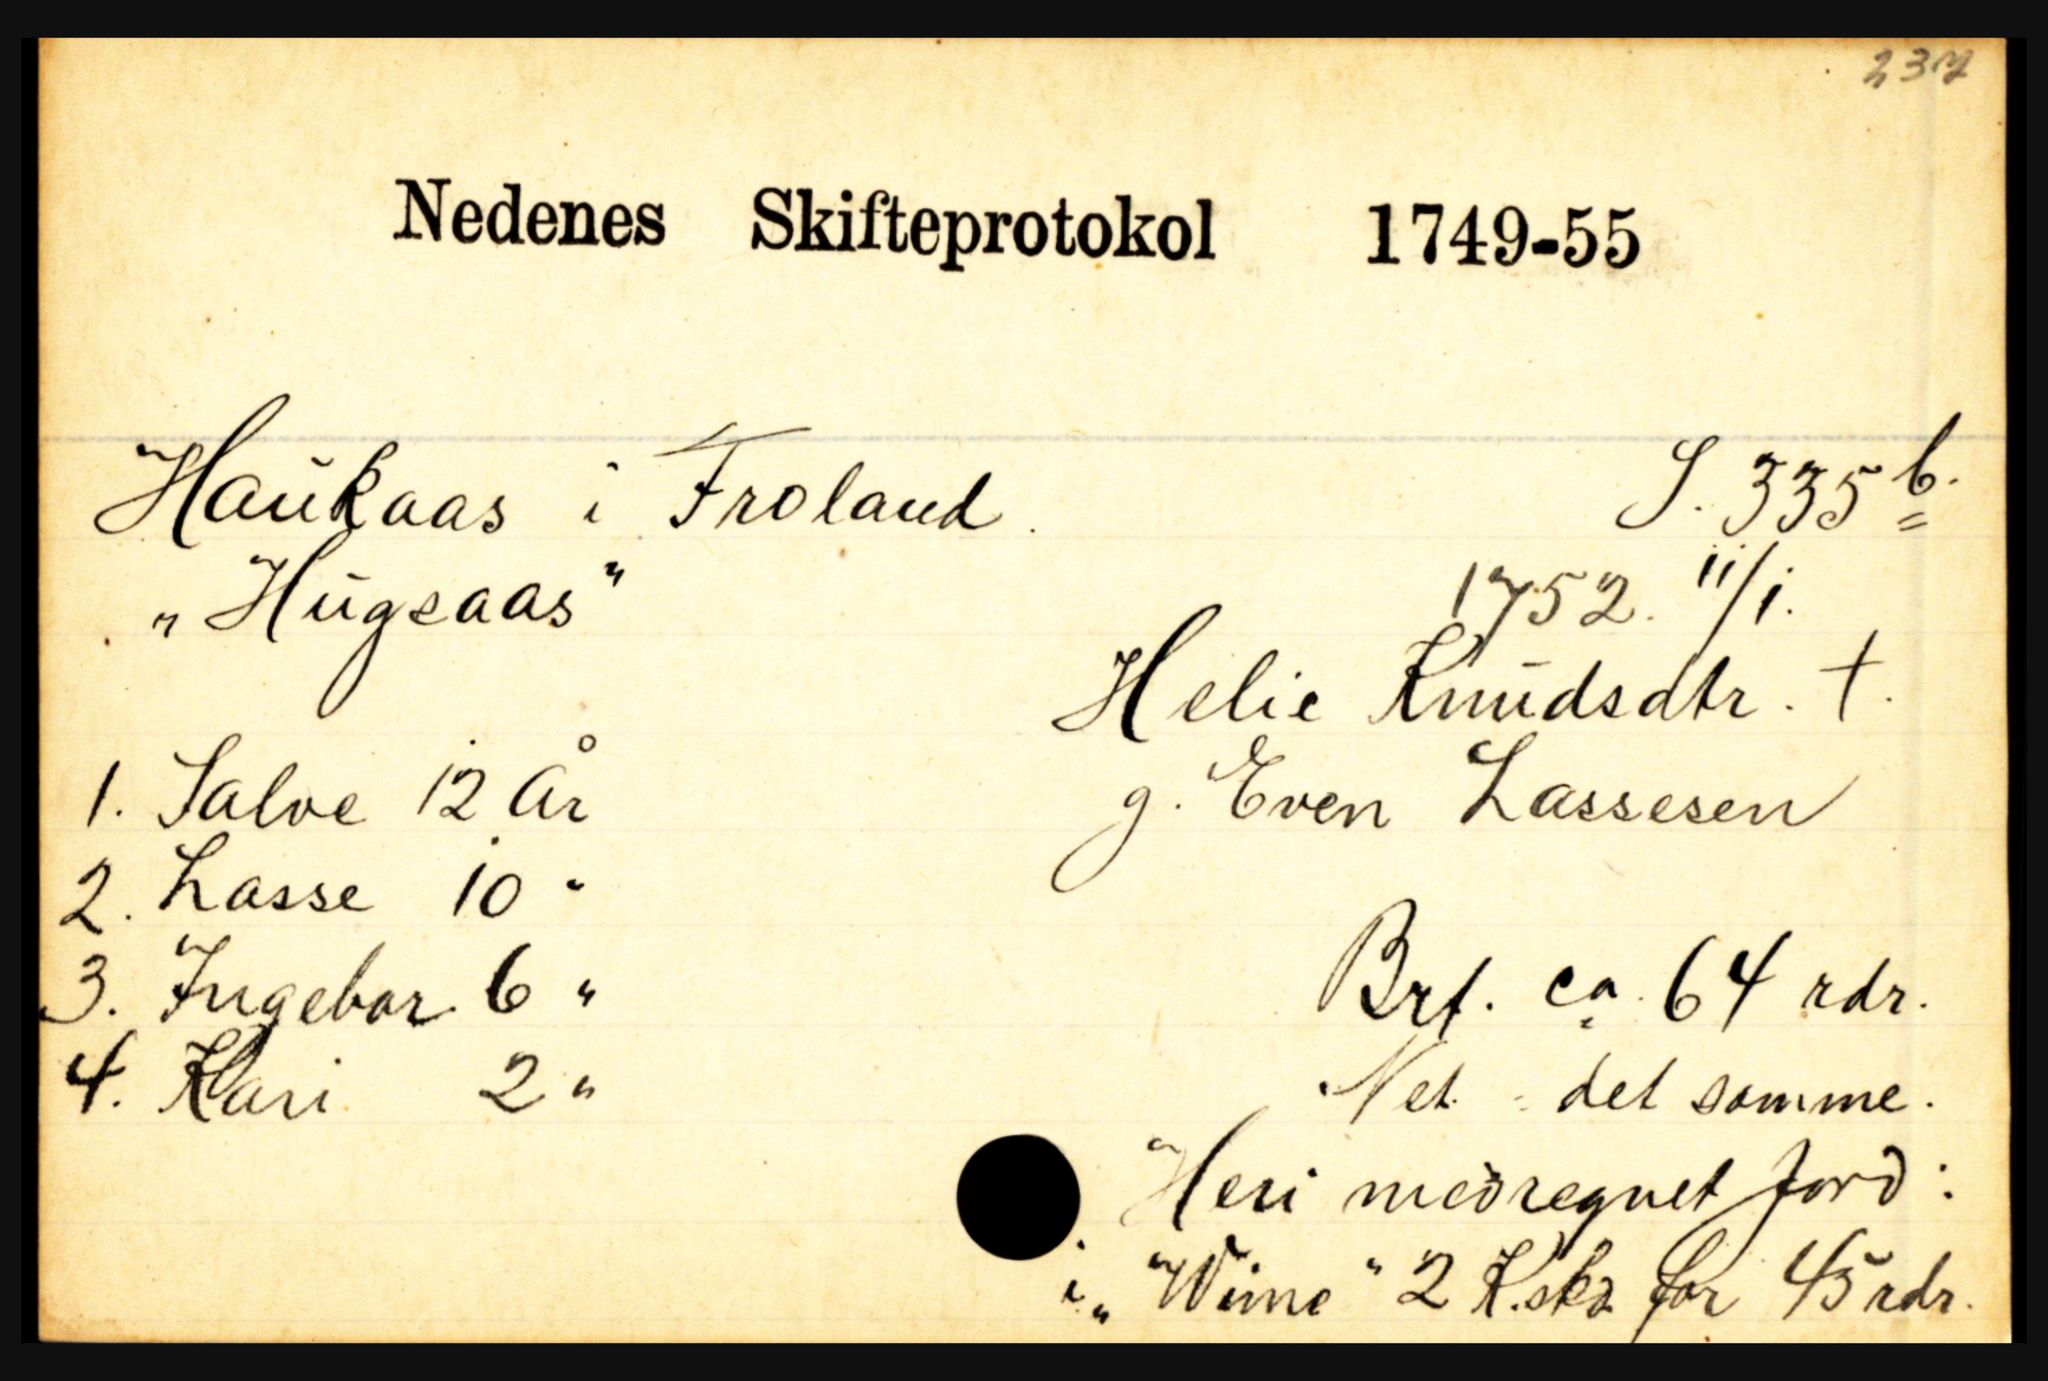 237
Nedenes Skifteprotokol 1749-55
Haukaas i Froland. S. 335 b.
„Hugsaas" 1752. 11/1.
Helie Knudsdtr. †.
g. Even Lassesen
1. Salve 12 År
2. Lasse 10 "
3. Ingebor 6 "
4. Kari 2 "
Brt. ca. 64 rdr.
Net. = det samme.
Heri medregnet Jord:
i „Wime" 2 K.skd for 45 rdr.